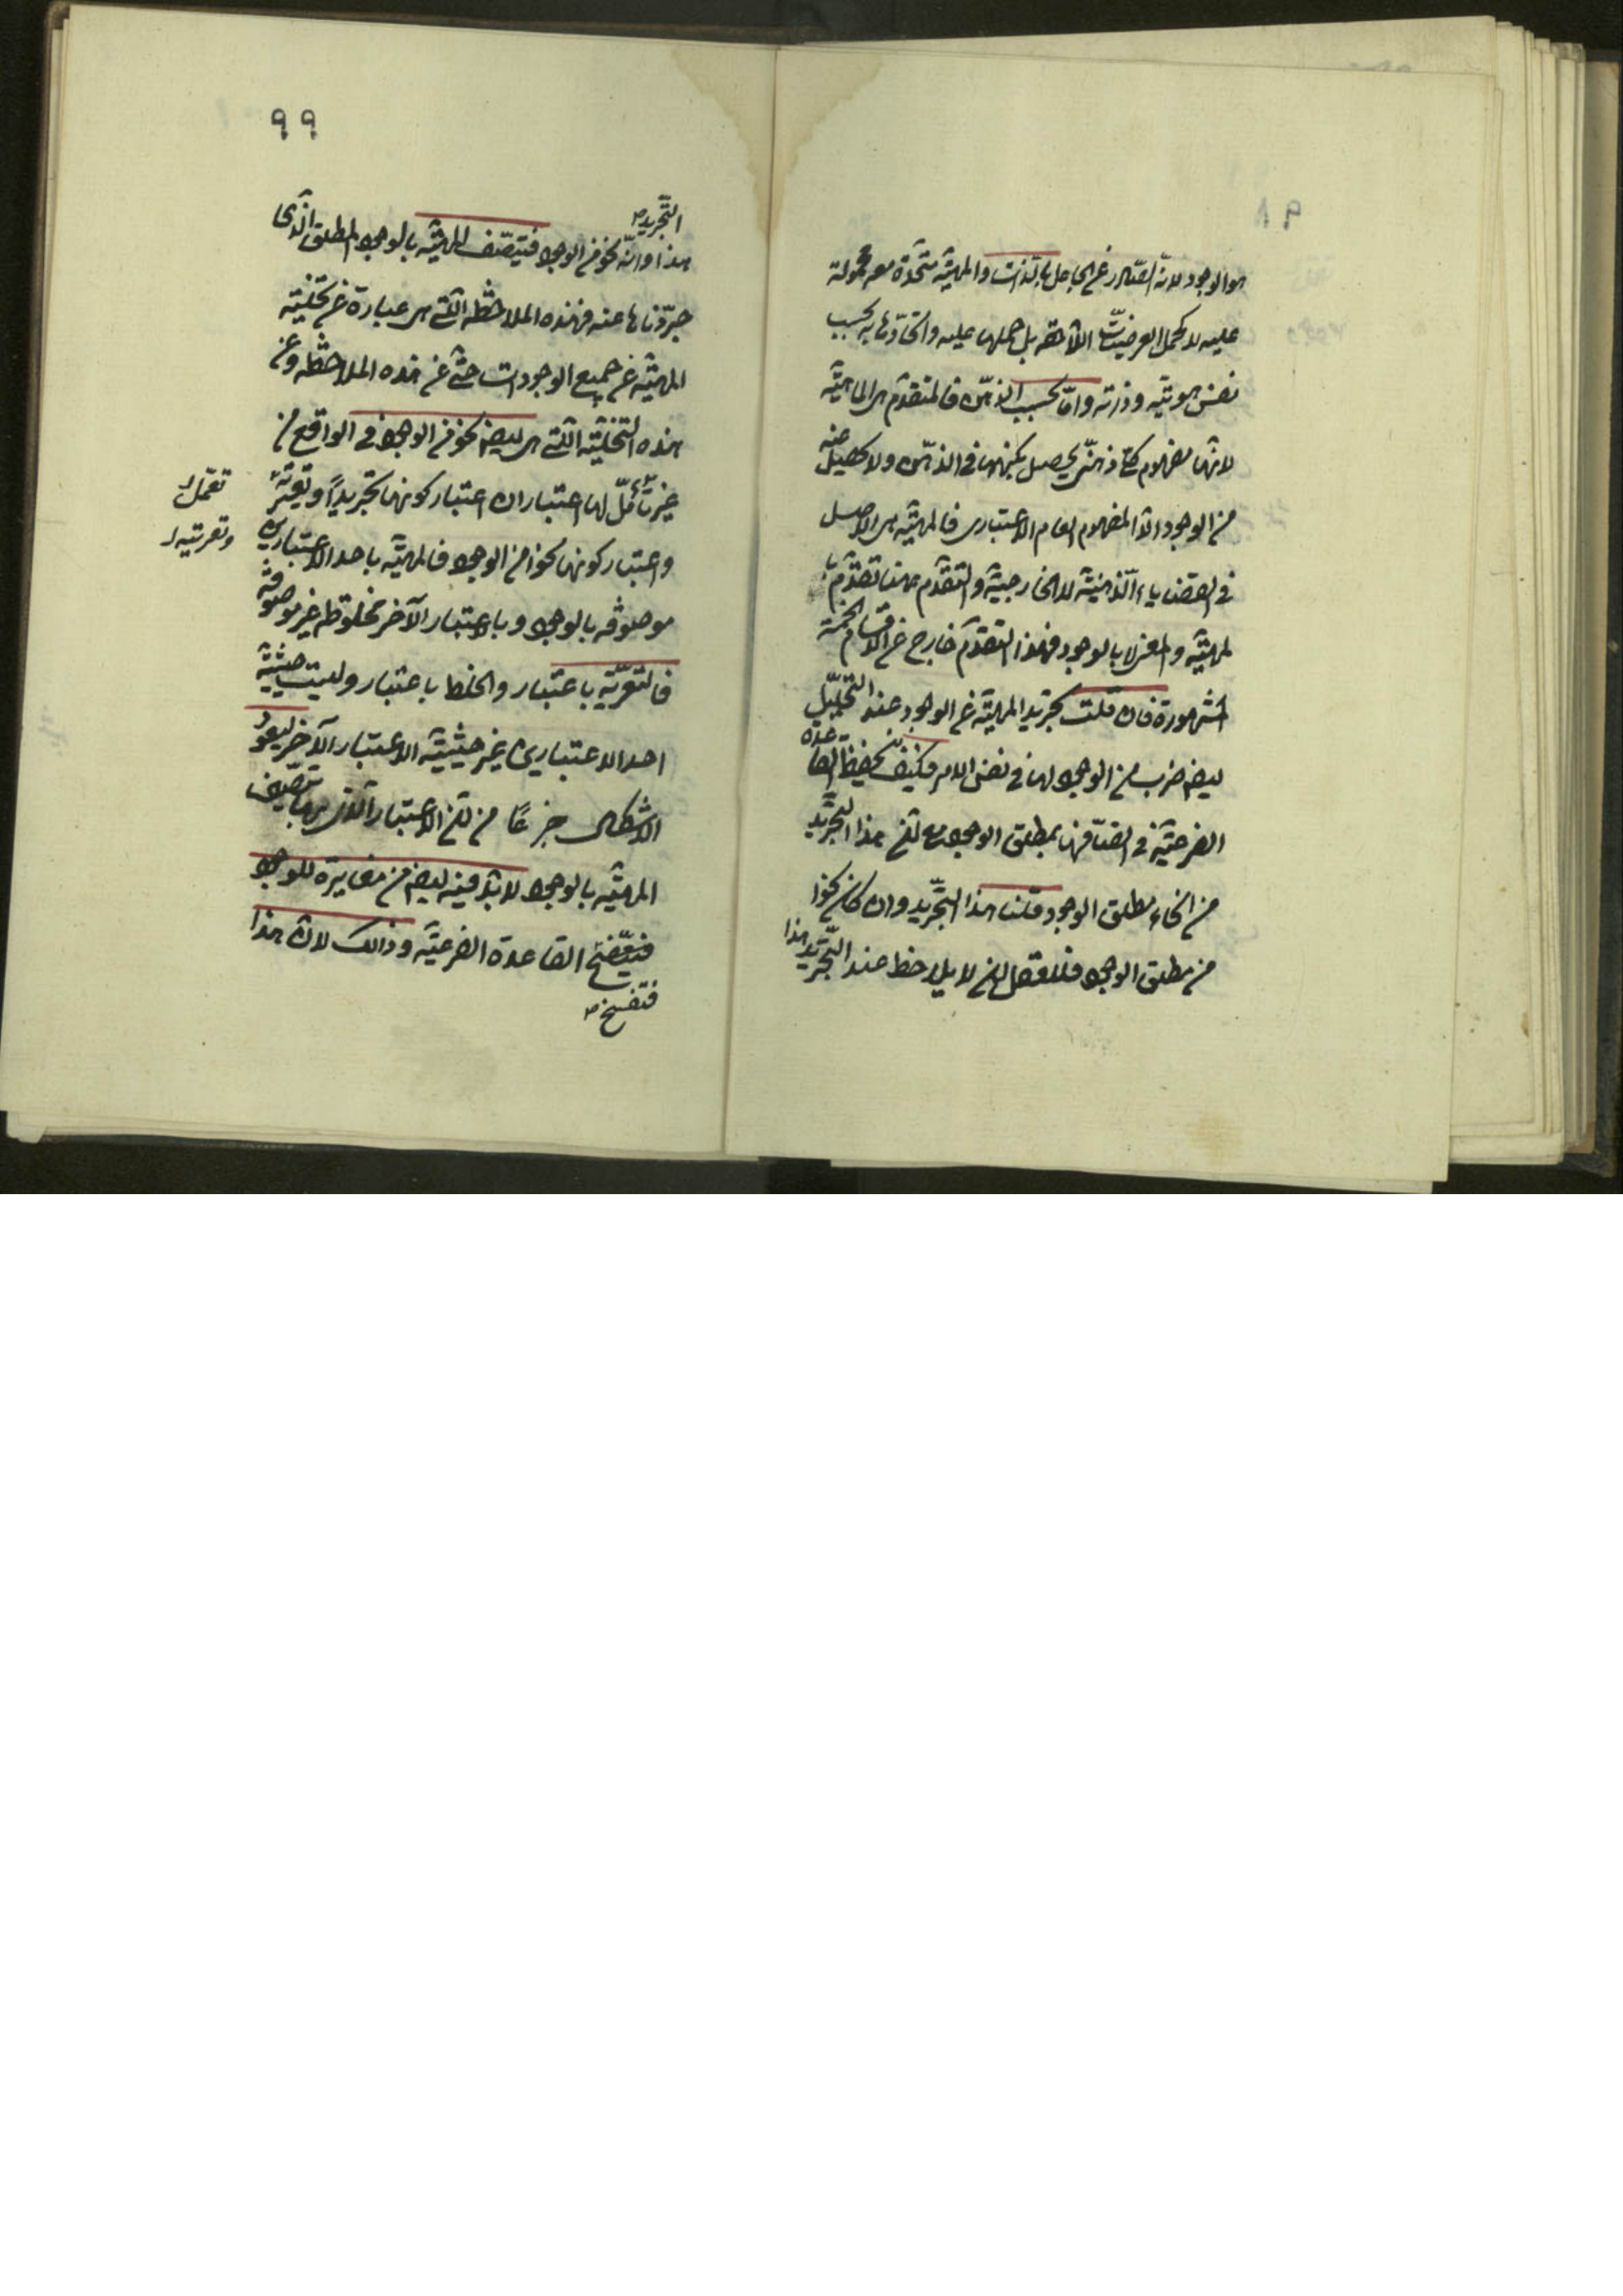 ٩٨
هو الوجود لانه الصادر عن الجاعل بالذات والمهيّة متحدة معه محمولة
عليه لا كحمل العرضيّات اللاحقه بل حملها عليه واتحادها به بحسب
نفس هويتّه وذاته وامّا بحسب الذهن فالمتقدّم هى الماهيّة
لانها مفهوم كلى ذهنى يحصل بكنهها فى الذهن ولا يحصل منه
من الوجود الا المفهوم العام الاعتبارى فالمهيّة هى الاصل
فى القضاياء الذهنيّة لا الخارجيّة والتقدّم ههنا تقدّم با
لمهيّة والمعنى لا بالوجود فهذا التقدّم خارج عن الاقسام الخمسة
المشهورة فان قلت تجريد المهيّة عن الوجود عند التحليل
ايضا ضرب من الوجود لها فى نفس الامر فكيف تحفيظ القاعدة
الفرعيّة فى اتصافها بمطلق الوجود مع انّ هذا التجريد
من انحاء مطلق الوجود قلنا هذا التجريد وان كان نحوا
من مطلق الوجود فللعقل ان لا يلاحظ عند التجريد هذا
٩٩
التجريد
هذا وانّه نحو من الوجود فيتصّف المهيّة بالوجود المطلق الذى
جرّدناها عنه فهذه الملاحظه التّى هى عبارة عن تخلية
المهيّة عن جميع الوجودات حتّى عن هذه الملاحظه وعن
هذه التخليّة التّى هى ايضا نحو من الوجود فى الواقع من
غير تأمّل لها اعتباران اعتبار كونها تجريداً وتعريّة
تعمل
وتعريتها
واعتبار كونها نحوا من الوجود فالمهيّة باحد الاعتبارين
موصوفه بالوجود وبالاعتبار الآخر مخلوطه غير موصوفه
فالتعريّه باعتبار والخلط باعتبار وليست حيثيّة
احد الاعتبارين غير حيثيّة الاعتبار الآخر ليعود
الاشكال جزعًا من انّ الاعتبار الذى بها يتّصف
المهيّه بالوجود لا بدّ فيه ايضا من مغايرة للوجود
فيفسّخ القاعدة الفرعيّه وذالك لانّ هذا
فتنفسخ